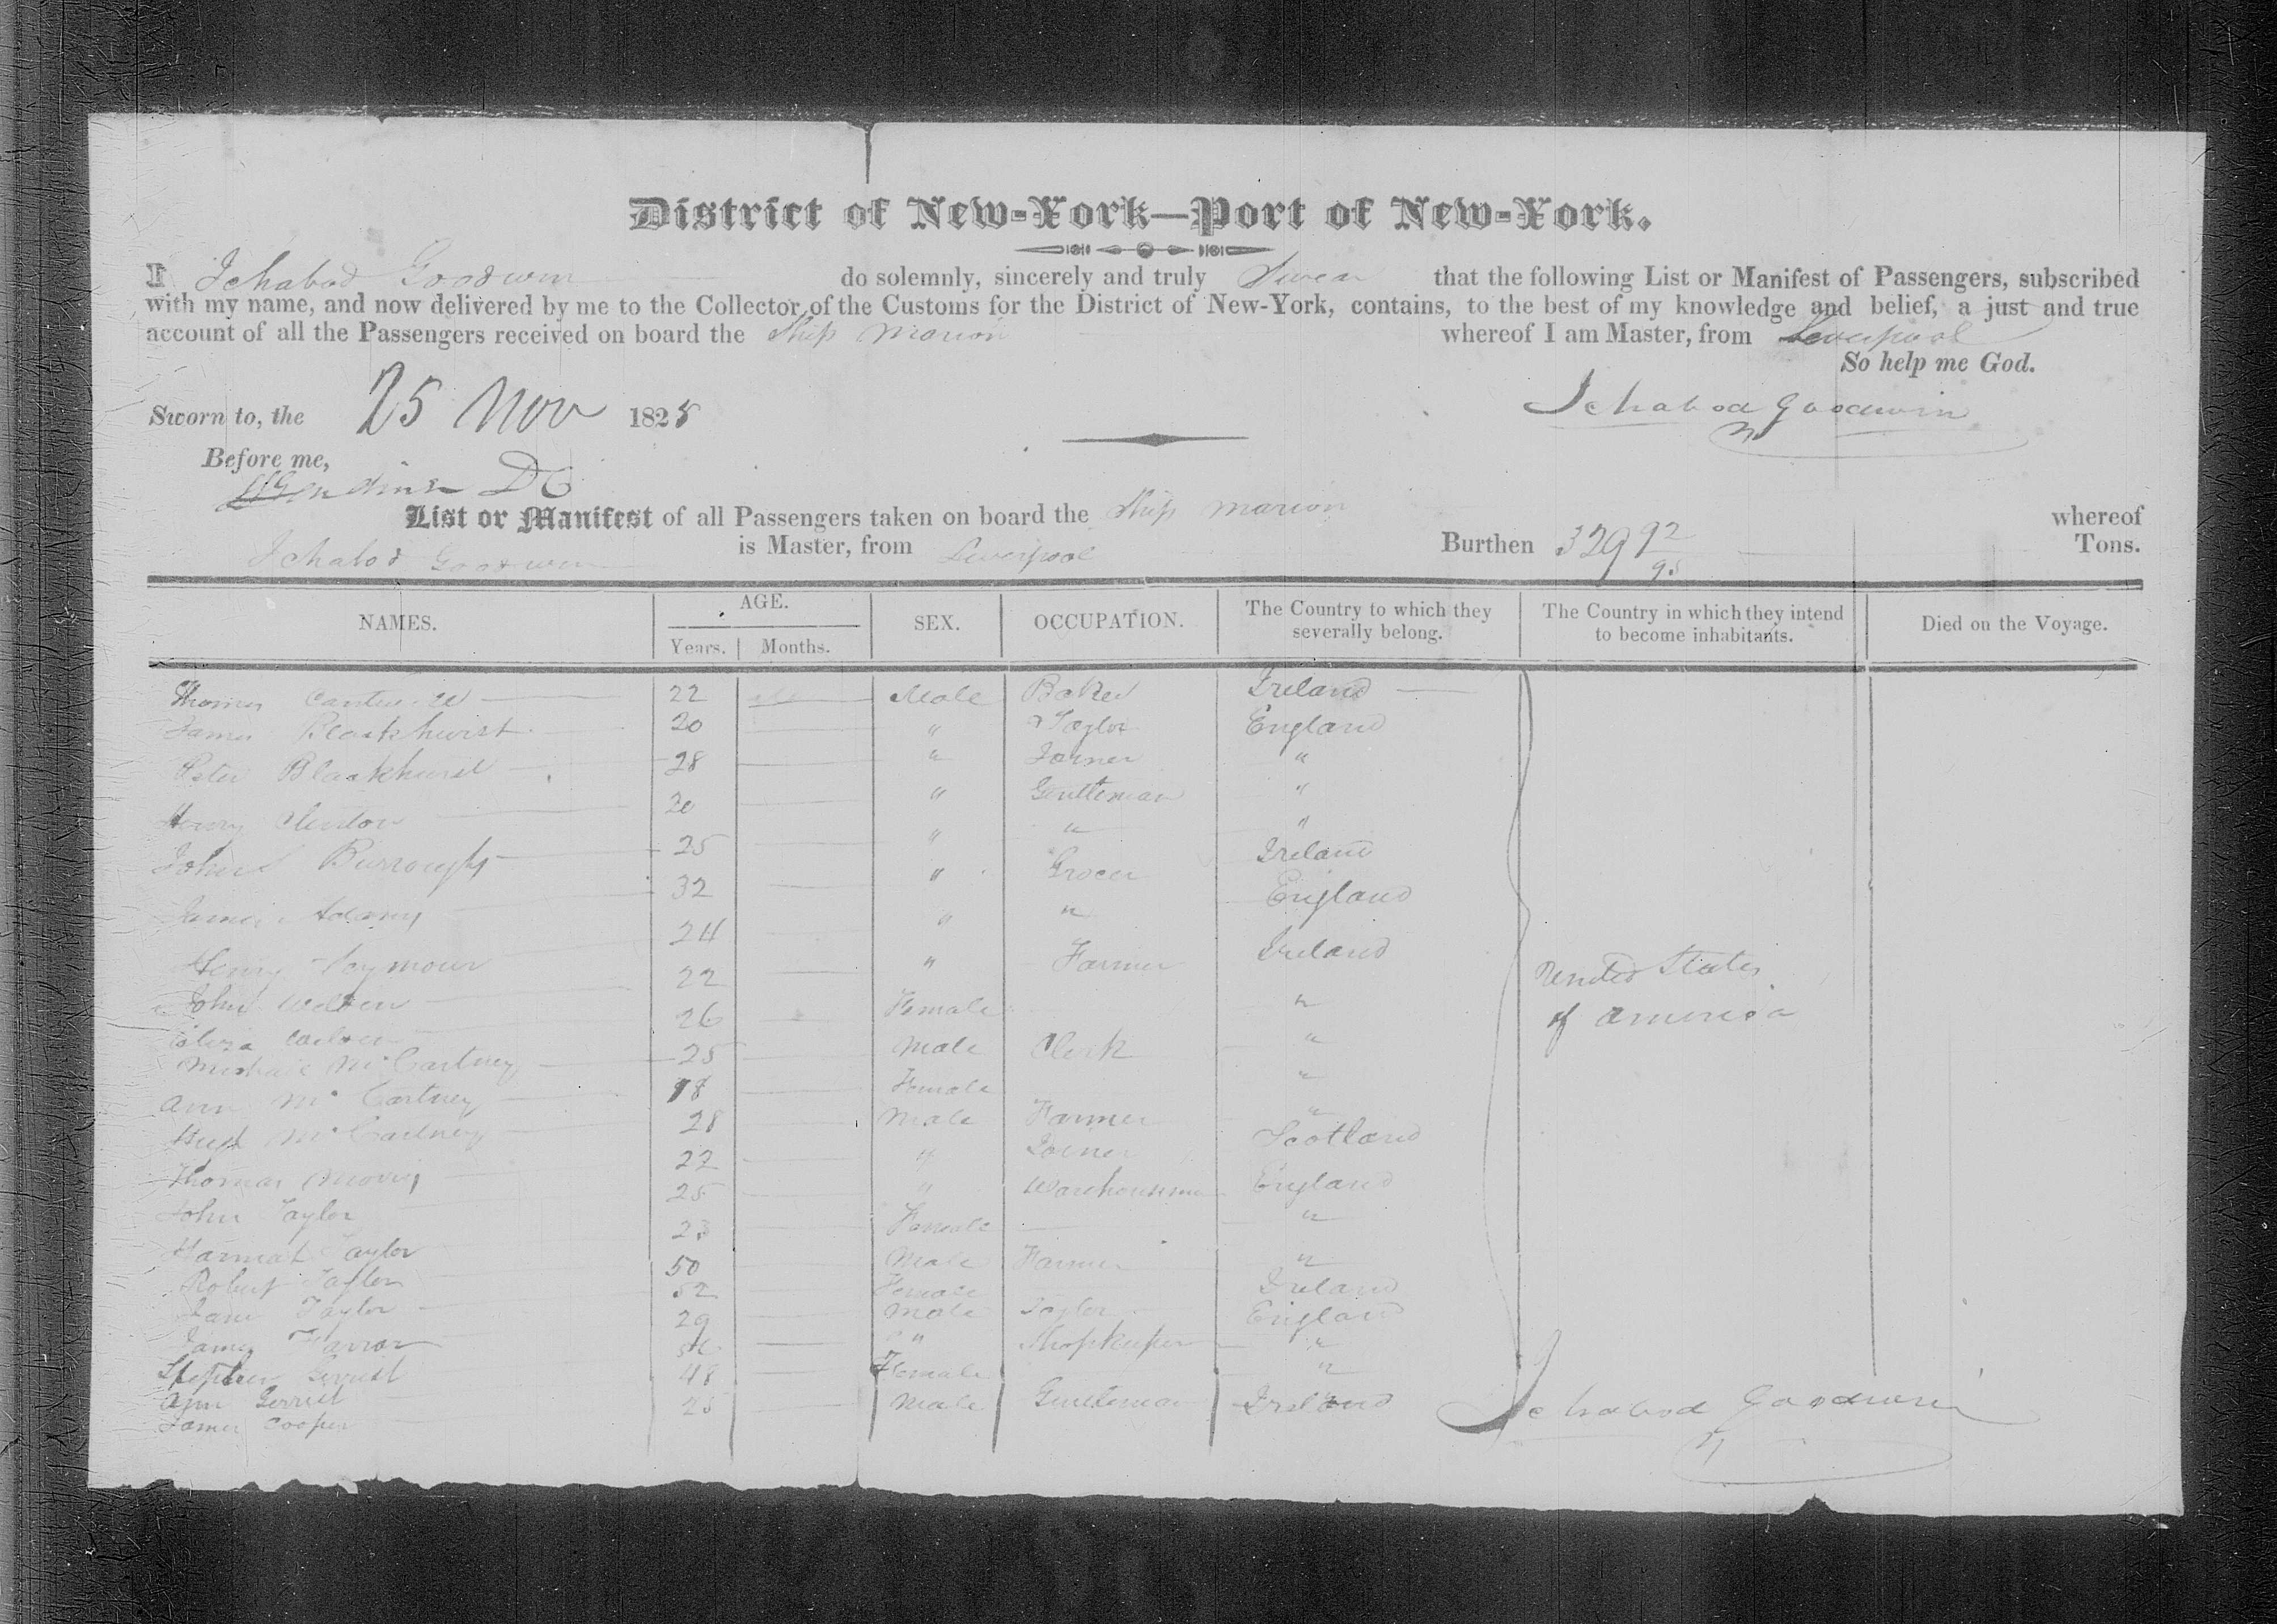 District of New-York—Port of New-York.
I Ichabod Goodwin do solemnly, sincerely and truly Swear that the following List or Manifest of Passengers, subscribed
with my name, and now delivered by me to the Collector of the Customs for the District of New-York, contains, to the best of my knowledge and belief, a just and true
account of all the Passengers received on board the Ship Marion whereof I am Master, from Liverpool
So help me God.
Sworn to, the 25 Nov 1825 Ichabod Goodwin
Before me,
List or Manifest of all Passengers taken on board the Ship Marion whereof
Ichabod Goodwin is Master, from Liverpool Burthen 329 92/95 Tons.
NAMES. AGE. Years. Months. SEX. OCCUPATION. The Country to which they severally belong. The Country in which they intend to become inhabitants. Died on the Voyage.
Thomas Cantwell 22 Male Baker Ireland
James Blackhurst 20 " Taylor England
Peter Blackhurst 28 " Joiner "
Henry Clinton 20 " Gentleman "
John Burroughs 25 " " "
James Adams 32 " Grocer Ireland
Henry Seymour 24 " " England
John 22 " Farmer Ireland
Eliza 26 Female "
Michael McCartney 25 Male Clerk "
Ann McCartney 18 Female "
Hugh McCartney 28 Male Farmer "
Thomas Morris 22 " Joiner Scotland
John Taylor 25 " Warehouseman England
Hannah Taylor 23 Female "
Robert Taylor 50 Male Farmer "
Jane Taylor 52 Female Ireland
James Farrar 29 Male Taylor England
Stephen " Shopkeeper "
Ann 48 Female "
James Cooper 25 Male Gentleman Ireland
United States
of America
Ichabod Goodwin